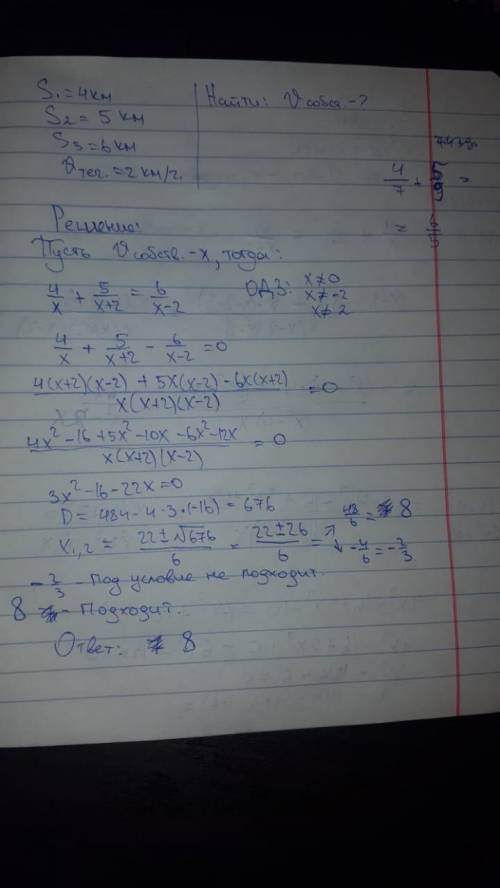 S₁ = 4 км
S₂ = 5 км
S₃ = 6 км
Vтеч. = 2 км/ч.
Найти: Vсобств. - ?
4/7 + 5/9 =
= 6/5
Решение:
Пусть Vсобств. - x, тогда:
4/x + 5/(x+2) = 6/(x-2)
ОДЗ: x≠0
x≠-2
x≠2
4/x + 5/(x+2) - 6/(x-2) = 0
(4(x+2)(x-2) + 5x(x-2) - 6x(x+2))/(x(x+2)(x-2)) = 0
(4x² - 16 + 5x² - 10x - 6x² - 12x)/(x(x+2)(x-2)) = 0
3x² - 16 - 22x = 0
D = 484 - 4·3·(-16) = 676
x₁,₂ = (22 ± √676)/6 = (22 ± 26)/6 = ↗ 48/6 = 8
↓ -4/6 = -2/3
-2/3 - Под условие не подходит.
8 - Подходит.
Ответ: 8